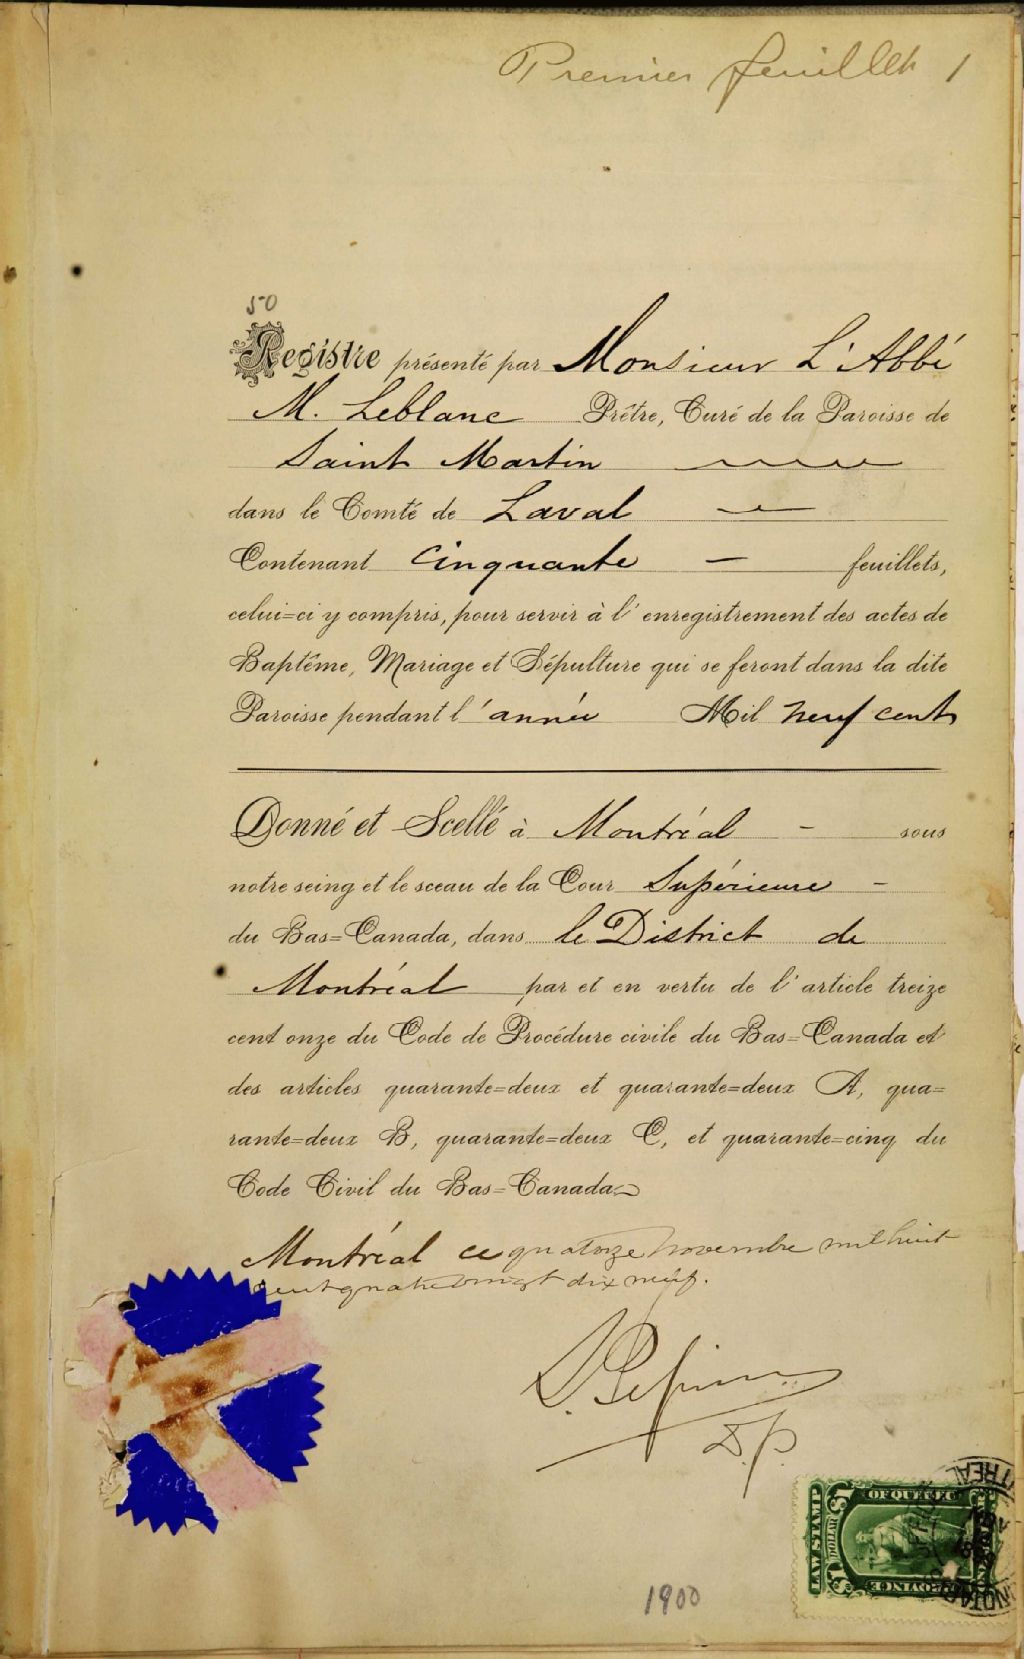 Premier feuillet 1
50
Registre présenté par Monsieur L'Abbé
M. Leblanc Prêtre, Curé de la Paroisse de
Saint Martin
dans le Comté de Laval
Contenant cinquante feuillets,
celui=ci y compris, pour servir à l'enregistrement des actes de
Baptême, Mariage et Sépulture qui se feront dans la dite
Paroisse pendant l'année Mil neuf cent
Donné et Scellé à Montréal sous
notre seing et le sceau de la Cour Supérieure
du Bas=Canada, dans le District de
Montréal par et en vertu de l'article treize
cent onze du Code de Procédure civile du Bas=Canada et
des articles quarante=deux et quarante=deux A, qua=
rante=deux B, quarante=deux C, et quarante=cinq du
Code Civil du Bas=Canada
Montréal ce quatorze novembre mil huit
cent quatre vingt dix neuf.
Pepin
D.P.
LAW STAMP
$1 DOLLAR $1
PROVINCE
OF QUEBEC
1900